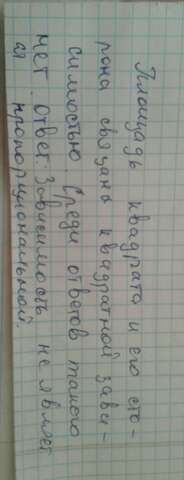 Площадь квадрата и его сто-
рона связана квадратной зави-
симостью. Среди ответов такого
нет. Ответ: Зависимость не являет
ся пропорциональной.